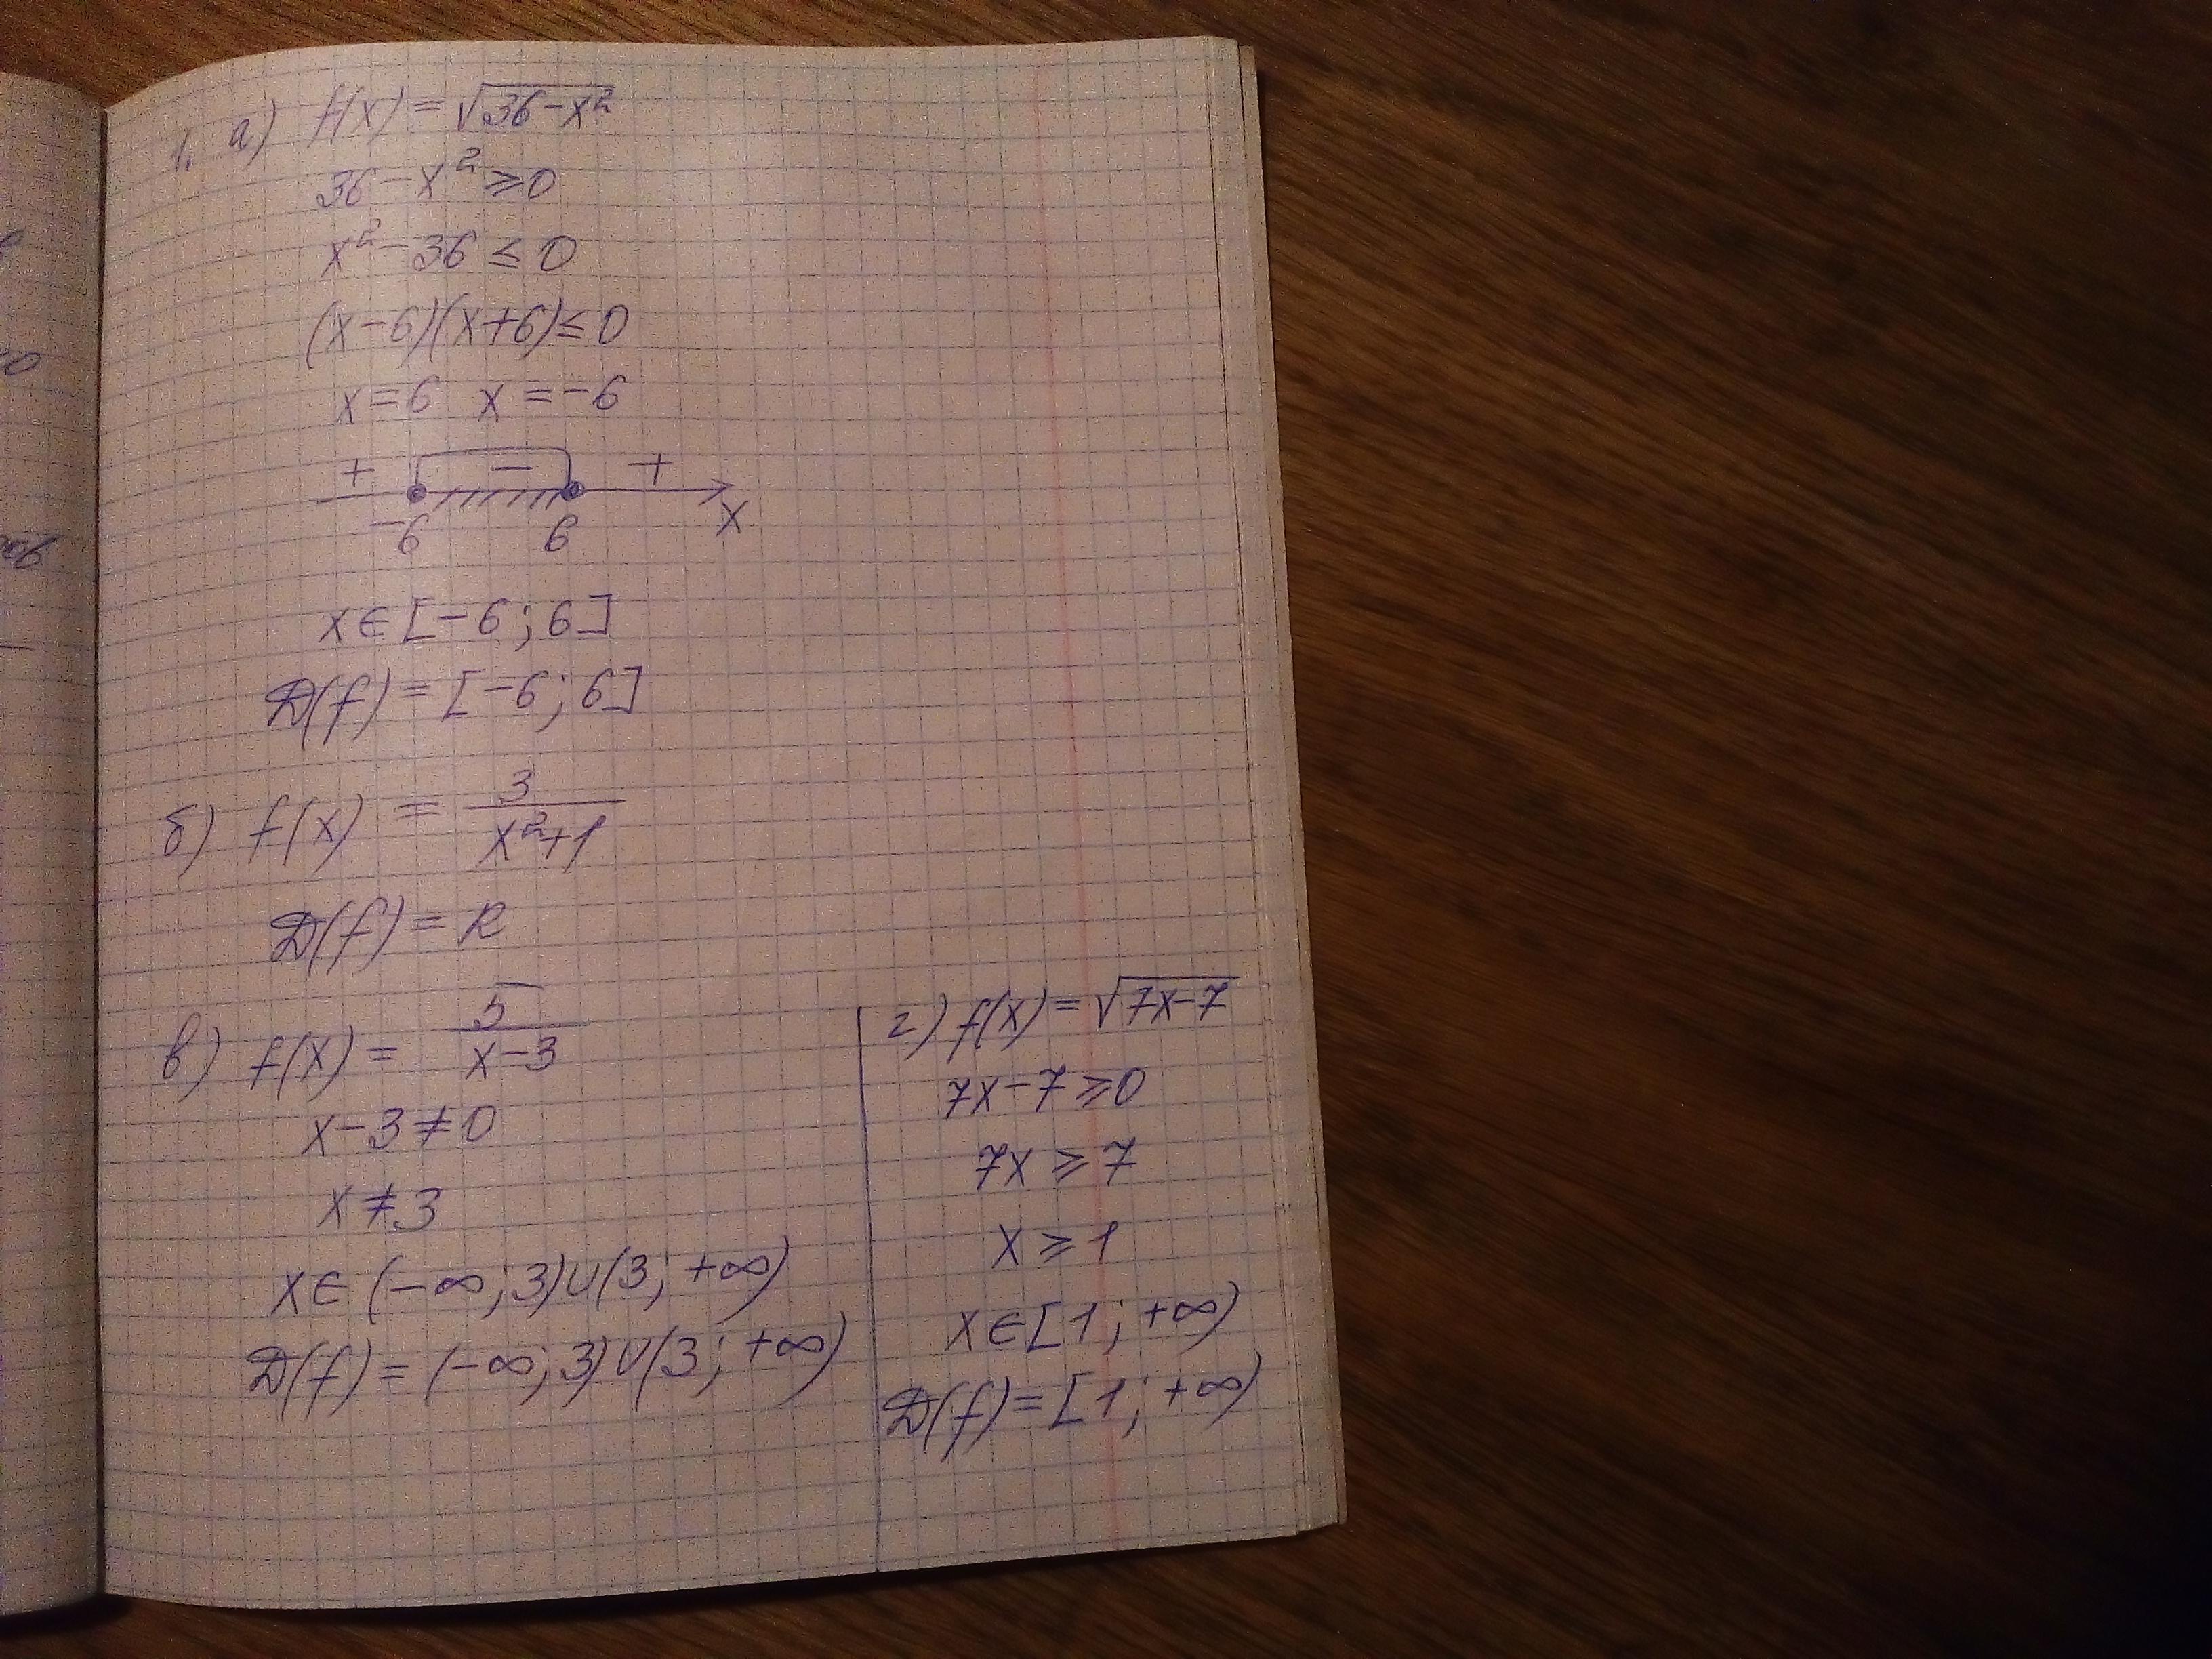 1. а) f(x) = √36-x²
36 - x² ≥ 0
x² - 36 ≤ 0
(x-6)(x+6) ≤ 0
x = 6 x = -6
+ - +
-6 6 x
x ∈ [-6; 6]
D(f) = [-6; 6]
б) f(x) = 3/(x²+1)
D(f) = R
в) f(x) = 5/(x-3)
x - 3 ≠ 0
x ≠ 3
x ∈ (-∞; 3)∪(3; +∞)
D(f) = (-∞; 3)∪(3; +∞)
г) f(x) = √7x-7
7x - 7 ≥ 0
7x ≥ 7
x ≥ 1
x ∈ [1; +∞)
D(f) = [1; +∞)